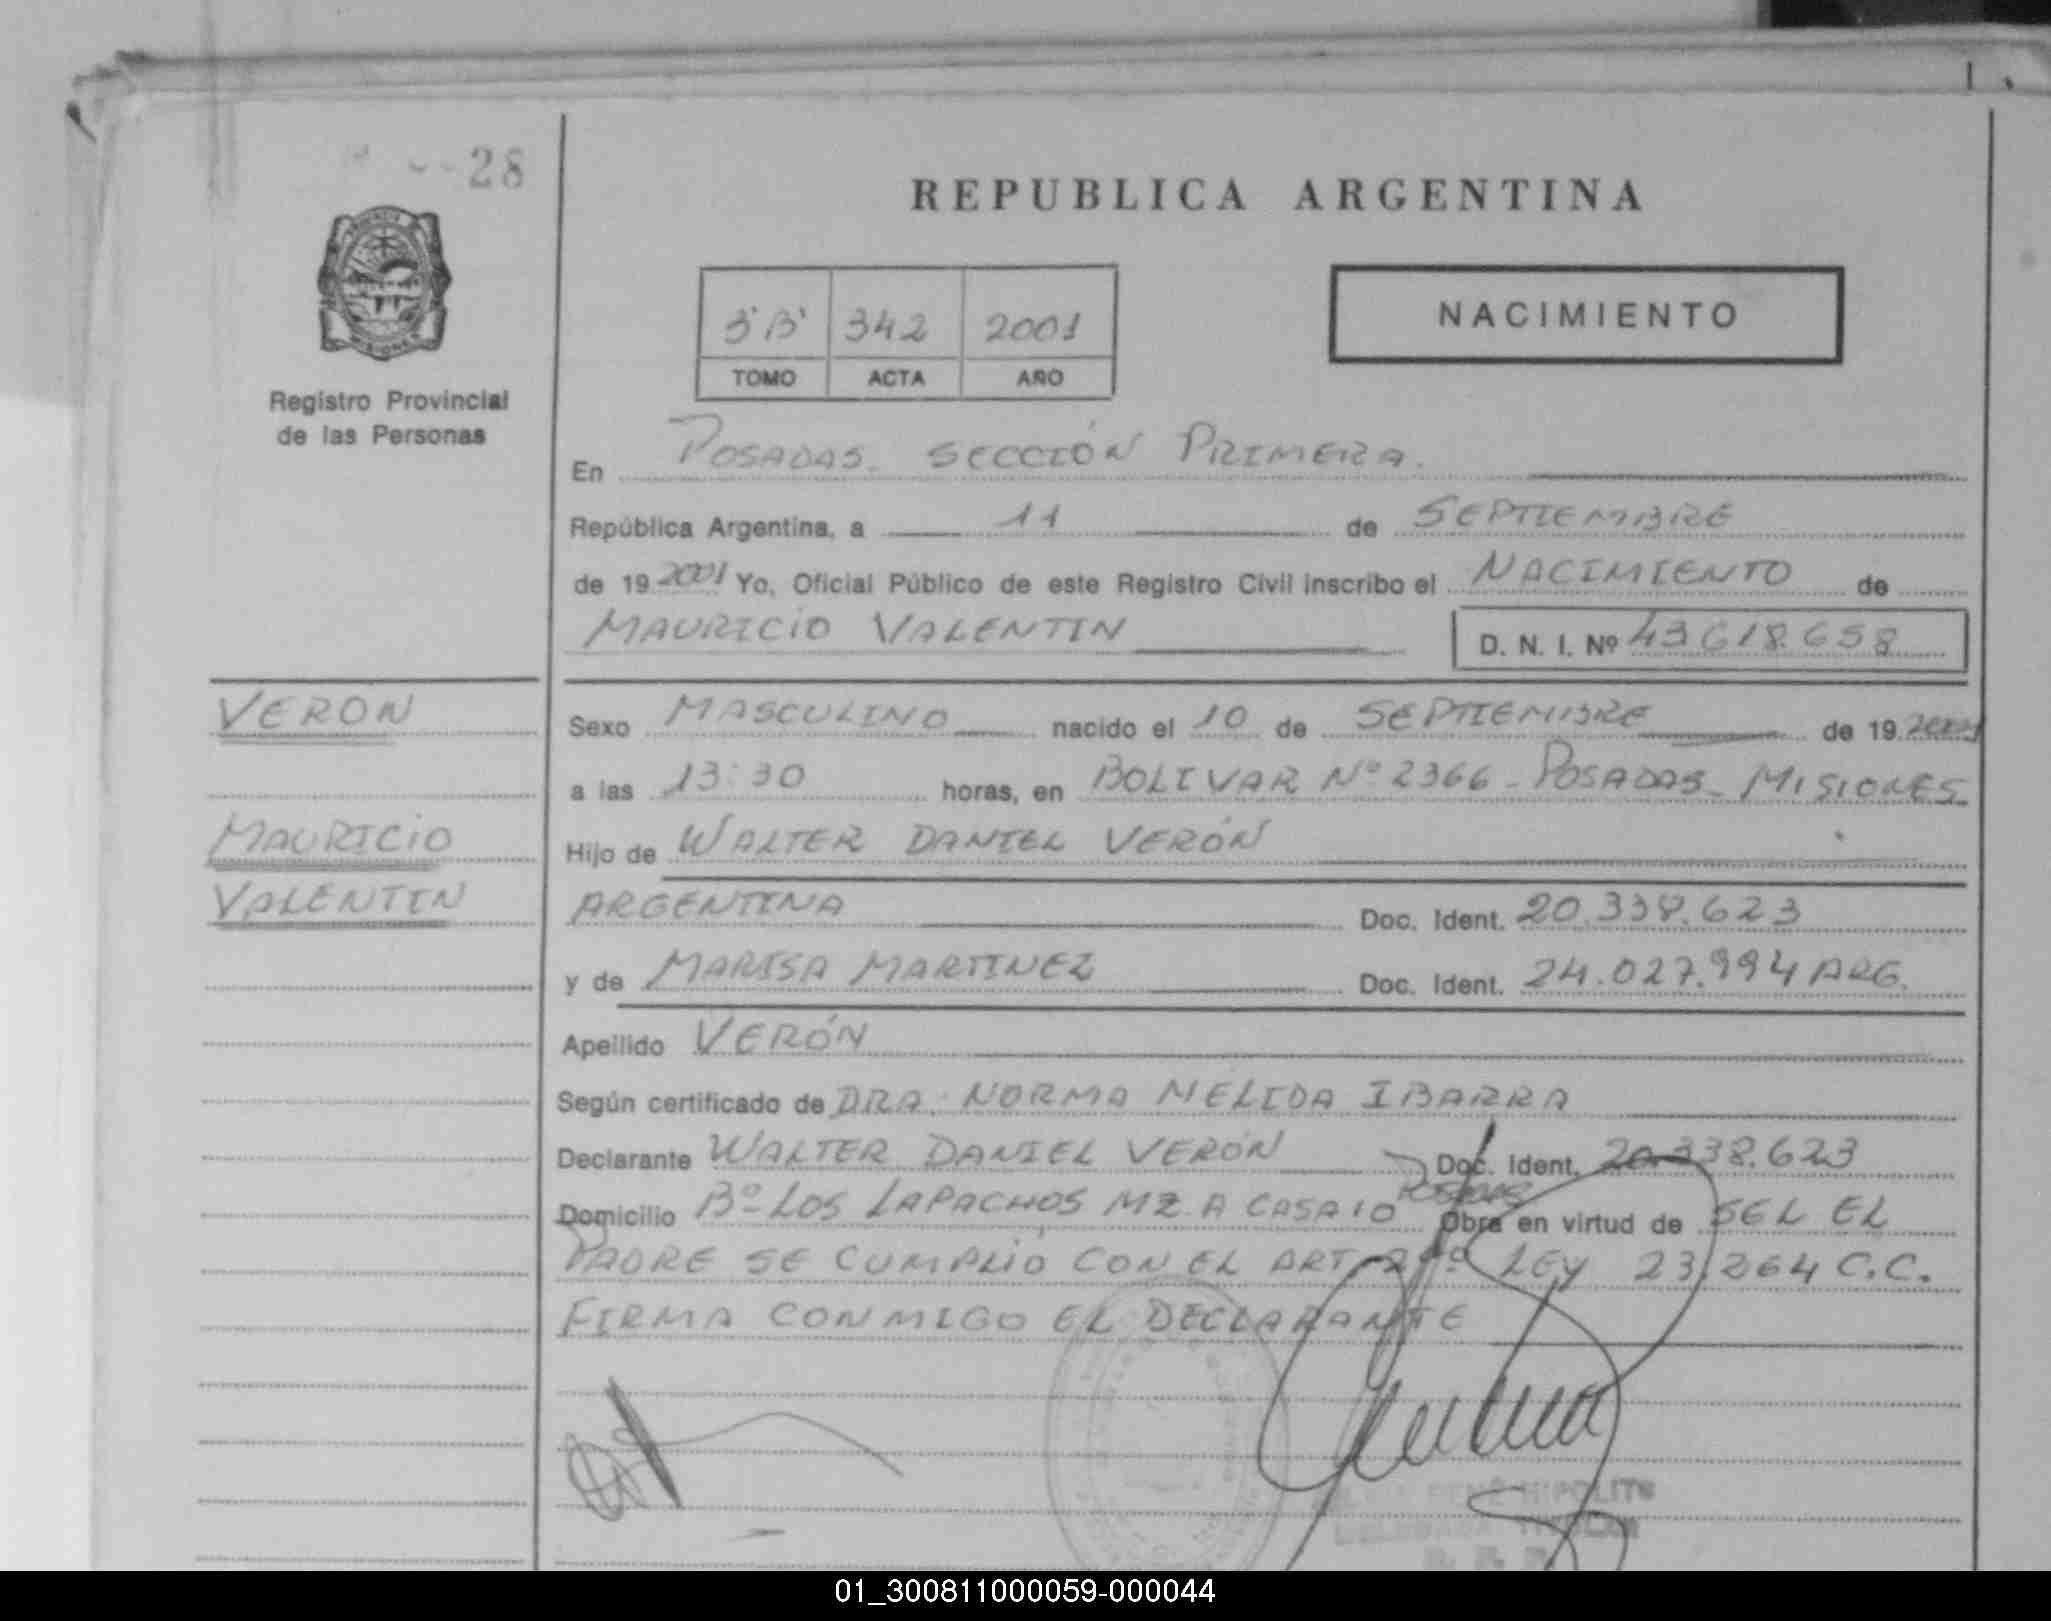 28
REPUBLICA ARGENTINA
MISIONES
Registro Provincial
de las Personas
3'B' 342 2001
TOMO ACTA AÑO
NACIMIENTO
En POSADAS. SECCIÓN PRIMERA.
República Argentina, a 11 de SEPTIEMBRE
de 19 2001 Yo, Oficial Público de este Registro Civil inscribo el NACIMIENTO de
MAURICIO VALENTIN D. N. I. Nº 43.618.658
VERON
MAURICIO
VALENTIN
Sexo MASCULINO nacido el 10 de SEPTIEMBRE de 19 2001
a las 13:30 horas, en BOLIVAR Nº 2366 - POSADAS - MISIONES
Hijo de WALTER DANIEL VERÓN
ARGENTINA Doc. Ident. 20.338.623
y de MARISA MARTINEZ Doc. Ident. 24.027.994 ARG.
Apellido VERÓN
Según certificado de DRA. NORMA NELIDA IBARRA
Declarante WALTER DANIEL VERÓN Doc. Ident. 20.338.623
Domicilio Bº LOS LAPACHOS MZ A CASA 10 POSADAS Obra en virtud de SEL EL
PADRE SE CUMPLIÓ CON EL ART LEY 23.264 C.C.
FIRMA CONMIGO EL DECLARANTE
RENÉ HIPOLITO
DELEGADA TITULAR
01_300811000059-000044